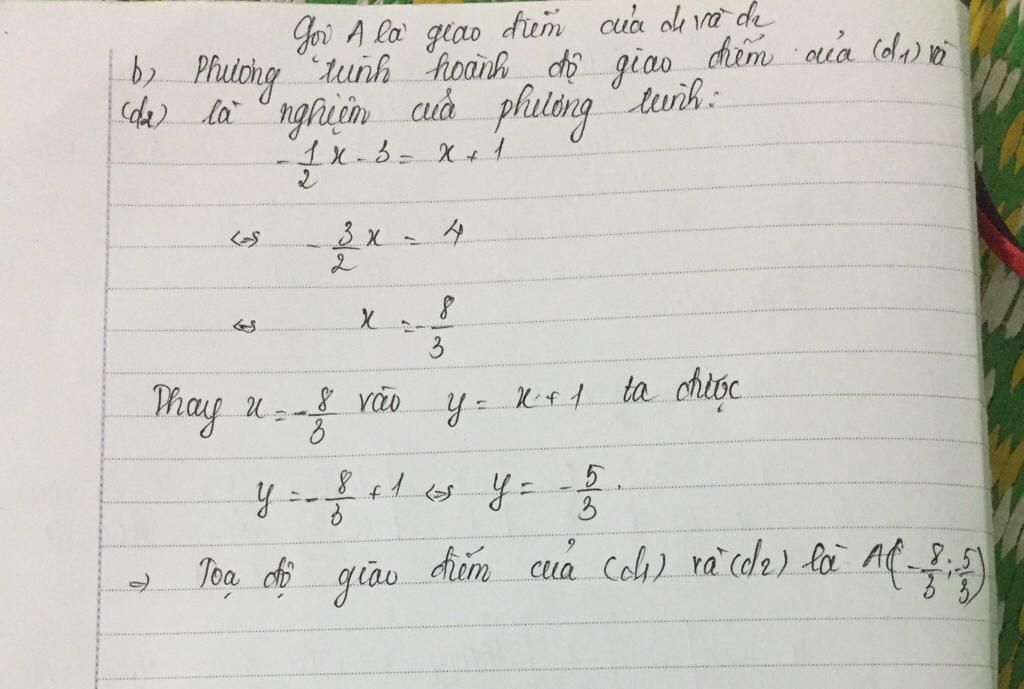 Gọi A là giao điểm của d1 và d2
b) Phương trình hoành độ giao điểm của (d1) và
(d2) là nghiệm của phương trình:
-1/2 x - 3 = x + 1
⇔ -3/2 x = 4
⇔ x = -8/3
Thay x = -8/3 vào y = x + 1 ta được
y = -8/3 + 1 ⇔ y = -5/3.
⇒ Toạ độ giao điểm của (d1) và (d2) là A(-8/3; -5/3)